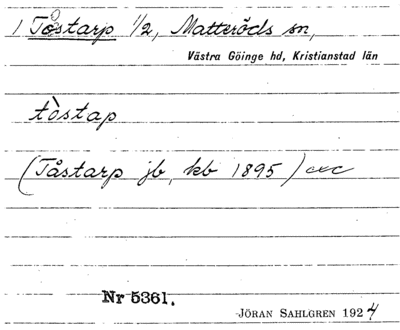 1 Tåstarp 1/2, Matteröds sn,
Västra Göinge hd, Kristianstad län
tòstap
(Tåstarp jb, kb 1895)
Nr 5361.
JÖRAN SAHLGREN 1924